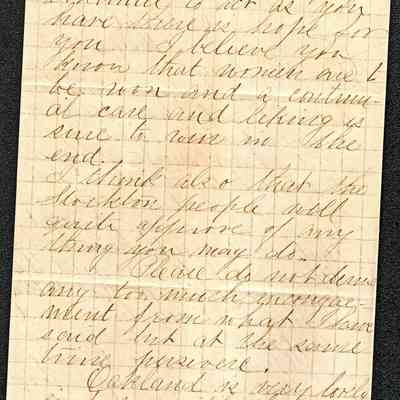 continue to act as you
have there is hope for
you. I believe you
know that women are to
be won and a continu-
al care and liking is
sure to win in the
end.
I think also that the
Stockton people will
quite approve of any
thing you may do.
Please do not derive
any too much encourage-
ment from what I have
said but at the same
time persevere.
Oakland is very lovely